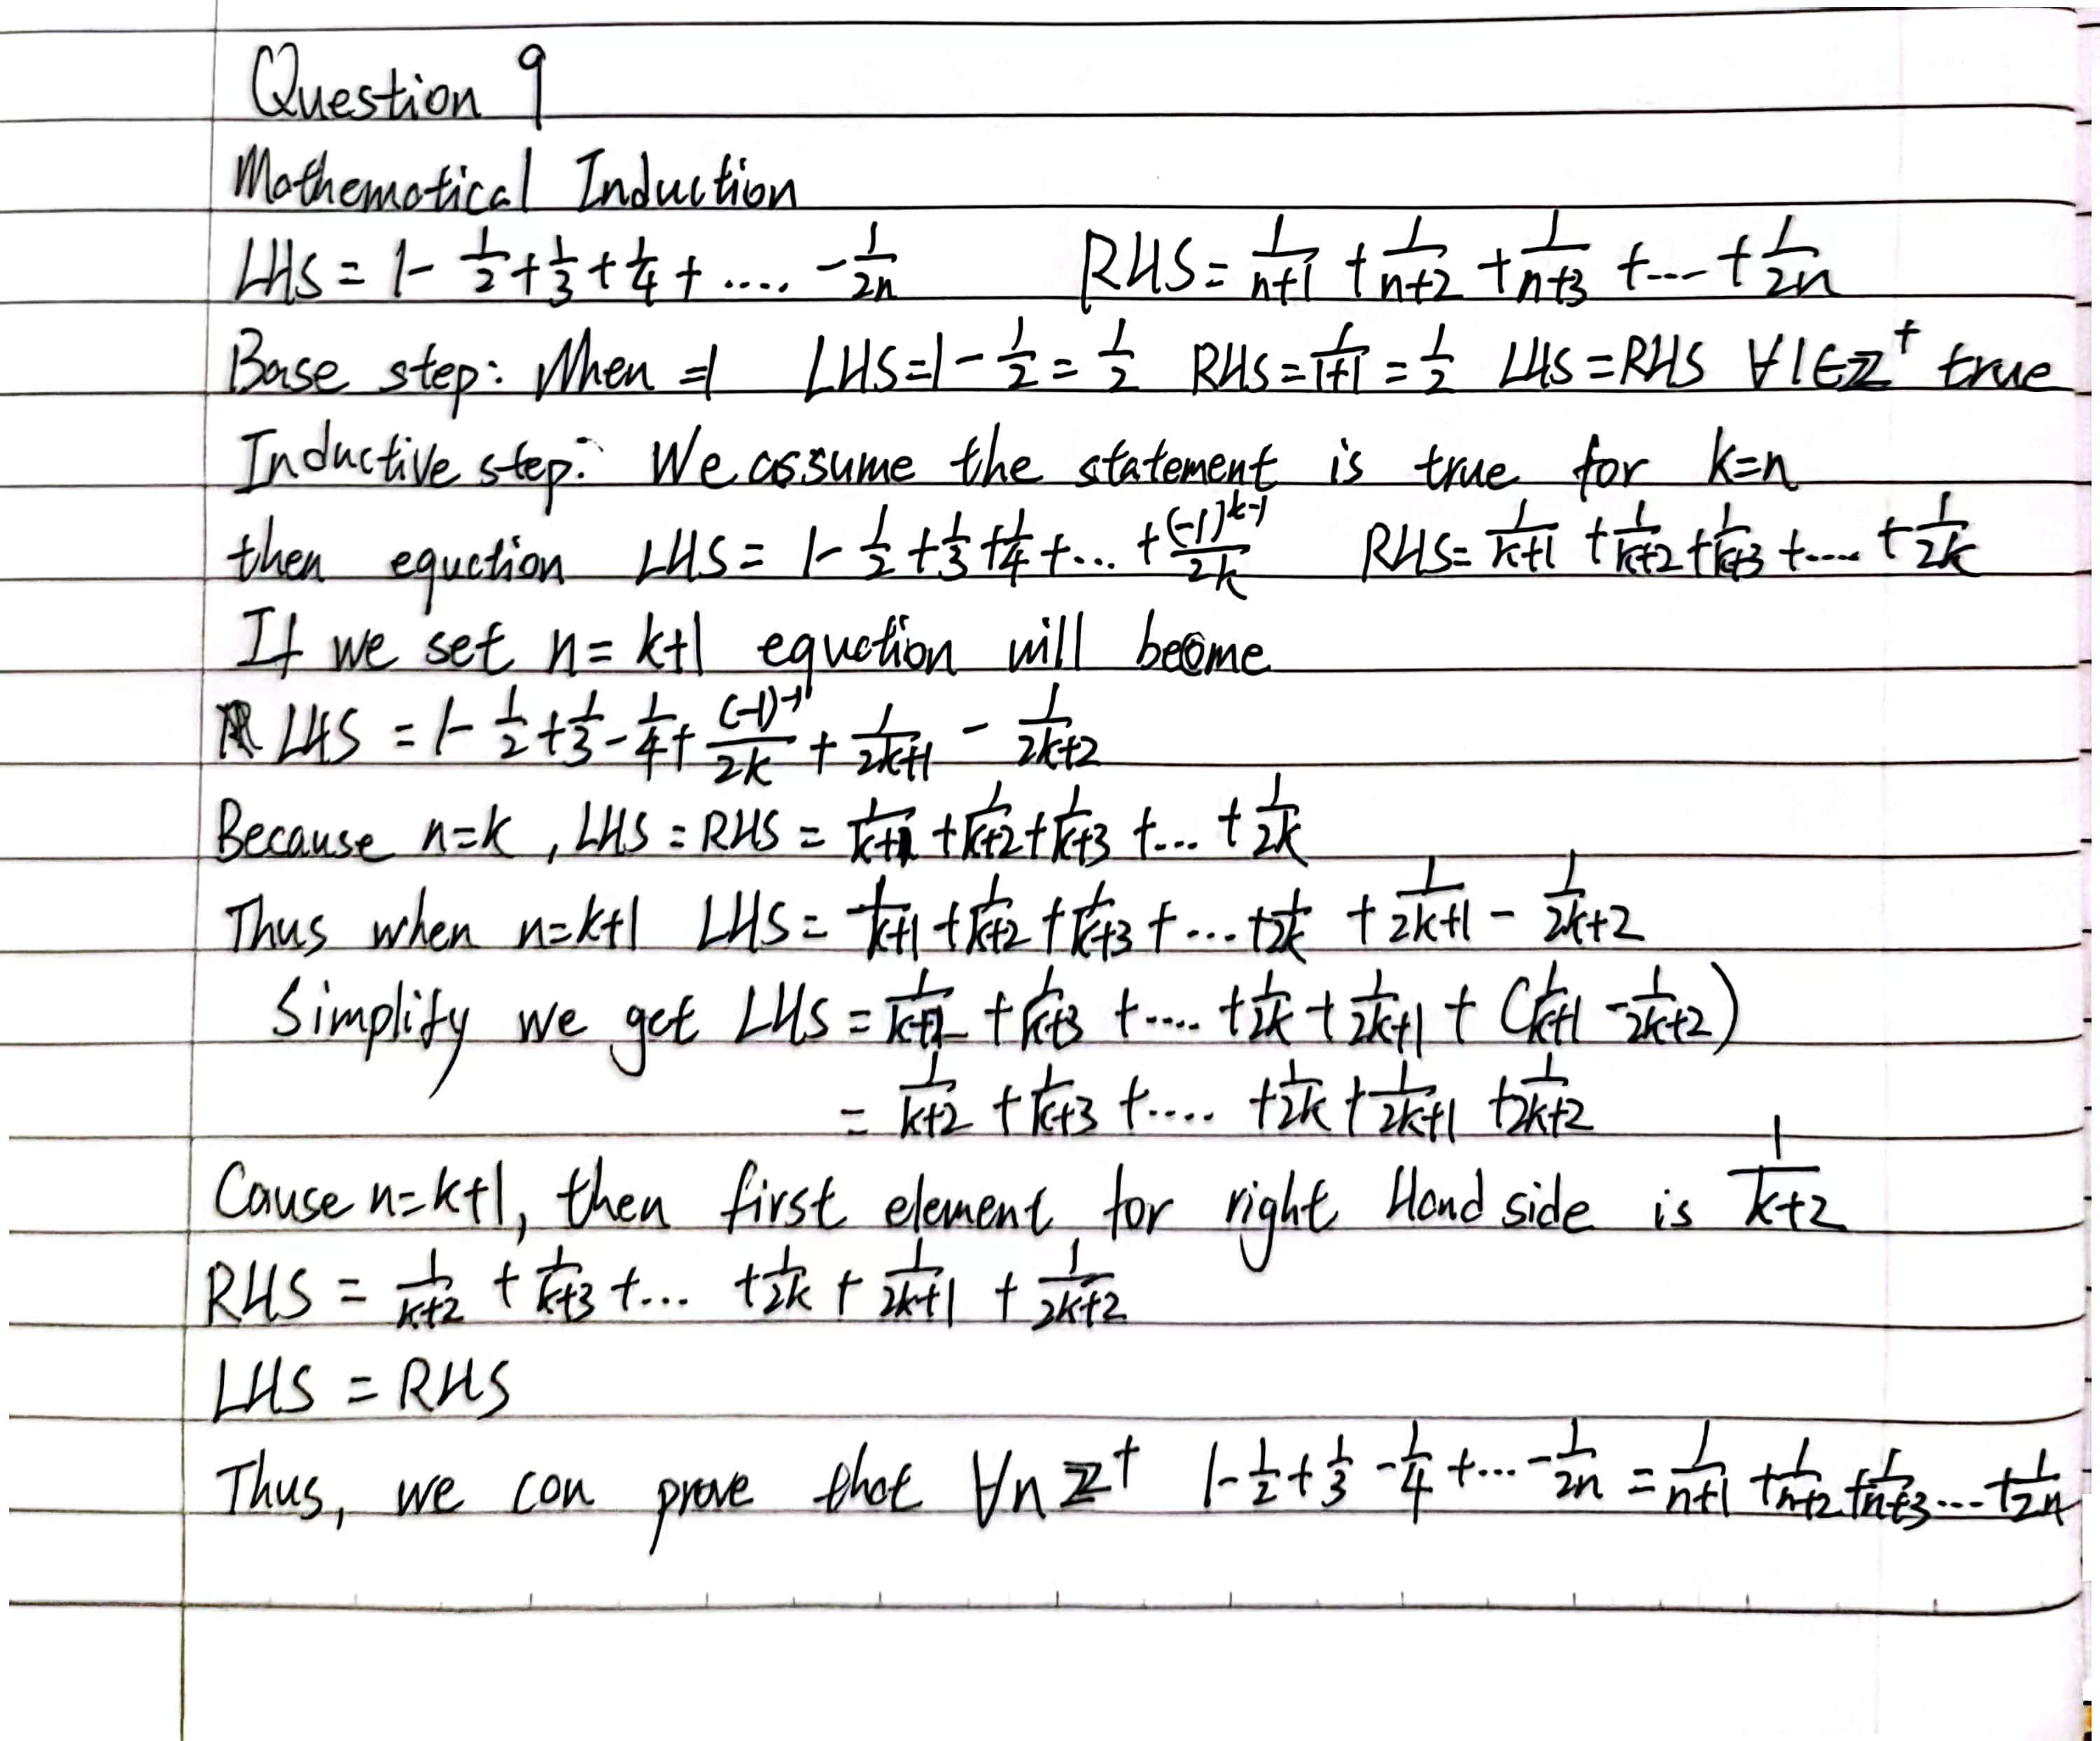 Question 9
Mathematical Induction
LHS = 1 - 1/2 + 1/3 + 1/4 + .... - 1/2n    RHS = 1/(n+1) + 1/(n+2) + 1/(n+3) + .... + 1/2n
Base step: When =1  LHS = 1 - 1/2 = 1/2  RHS = 1/(1+1) = 1/2  LHS = RHS  ∀1∈ℤ⁺ true
Inductive step: We assume the statement is true for k=n
then equation LHS = 1 - 1/2 + 1/3 + 1/4 + ... + (-1)^(k-1)/2k    RHS = 1/(k+1) + 1/(k+2) + 1/(k+3) + .... + 1/2k
If we set n = k+1 equation will become
LHS = 1 - 1/2 + 1/3 - 1/4 + (-1)^-1/2k + 1/(2k+1) - 1/(2k+2)
Because n=k, LHS = RHS = 1/(k+1) + 1/(k+2) + 1/(k+3) + ... + 1/2k
Thus when n=k+1 LHS = 1/(k+1) + 1/(k+2) + 1/(k+3) + ... + 1/2k + 1/(2k+1) - 1/(2k+2)
Simplify we get LHS = 1/(k+2) + 1/(k+3) + .... + 1/2k + 1/(2k+1) + (1/(k+1) - 1/(2k+2))
= 1/(k+2) + 1/(k+3) + .... + 1/2k + 1/(2k+1) + 1/(2k+2)
Cause n=k+1, then first element for right Hand side is 1/(k+2)
RHS = 1/(k+2) + 1/(k+3) + ... + 1/2k + 1/(2k+1) + 1/(2k+2)
LHS = RHS
Thus, we can prove that ∀n ℤ⁺ 1 - 1/2 + 1/3 - 1/4 + ... - 1/2n = 1/(n+1) + 1/(n+2) + 1/(n+3) ... + 1/2n